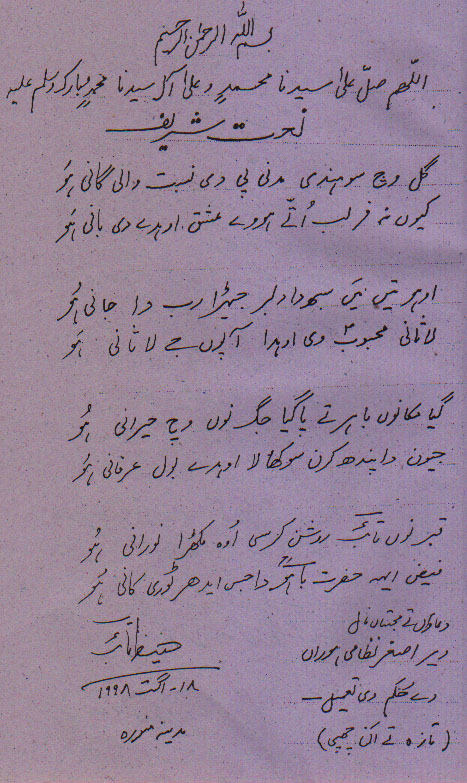 بسم اللہ الرحمٰن الرحیم
اللّٰھم صلّ علیٰ سیدنا محمدٍ و علیٰ آل سیدنا محمدٍ وبارک وسلم علیہ
نعت شریف
گل وچ سوہندی مدنی پی دی نسبت والی گانی ہُو
کیوں نہ فر لب اُتّے ہووے عشق اوہدے دی بانی ہُو
اوہو تیں نیں سبھ دا دلبر جیہڑا رب دا جانی ہُو
لاثانی محبوب دی اوہدا آپوں جے لاثانی ہُو
گیا مکانوں باہر تے پا گیا جگ نوں وچ حیرانی ہُو
جیون دا پندھ کرن سوکھالا اوہدے بول عرفانی ہُو
قبر نوں تائب روشن کرسی اوہ مکھڑا نورانی ہُو
فیض ایہہ حضرت باہوؒ دا جس ایدھر ٹوری کانی ہُو
دعاواں تے محبتاں نال
ویر اصغر نظامی ہوراں
دے حکم دی تعمیل
(تازہ تے ان چھپی)
حفیظ تائب
۱۸۔ اگست ۱۹۹۸
مدینہ منورہ